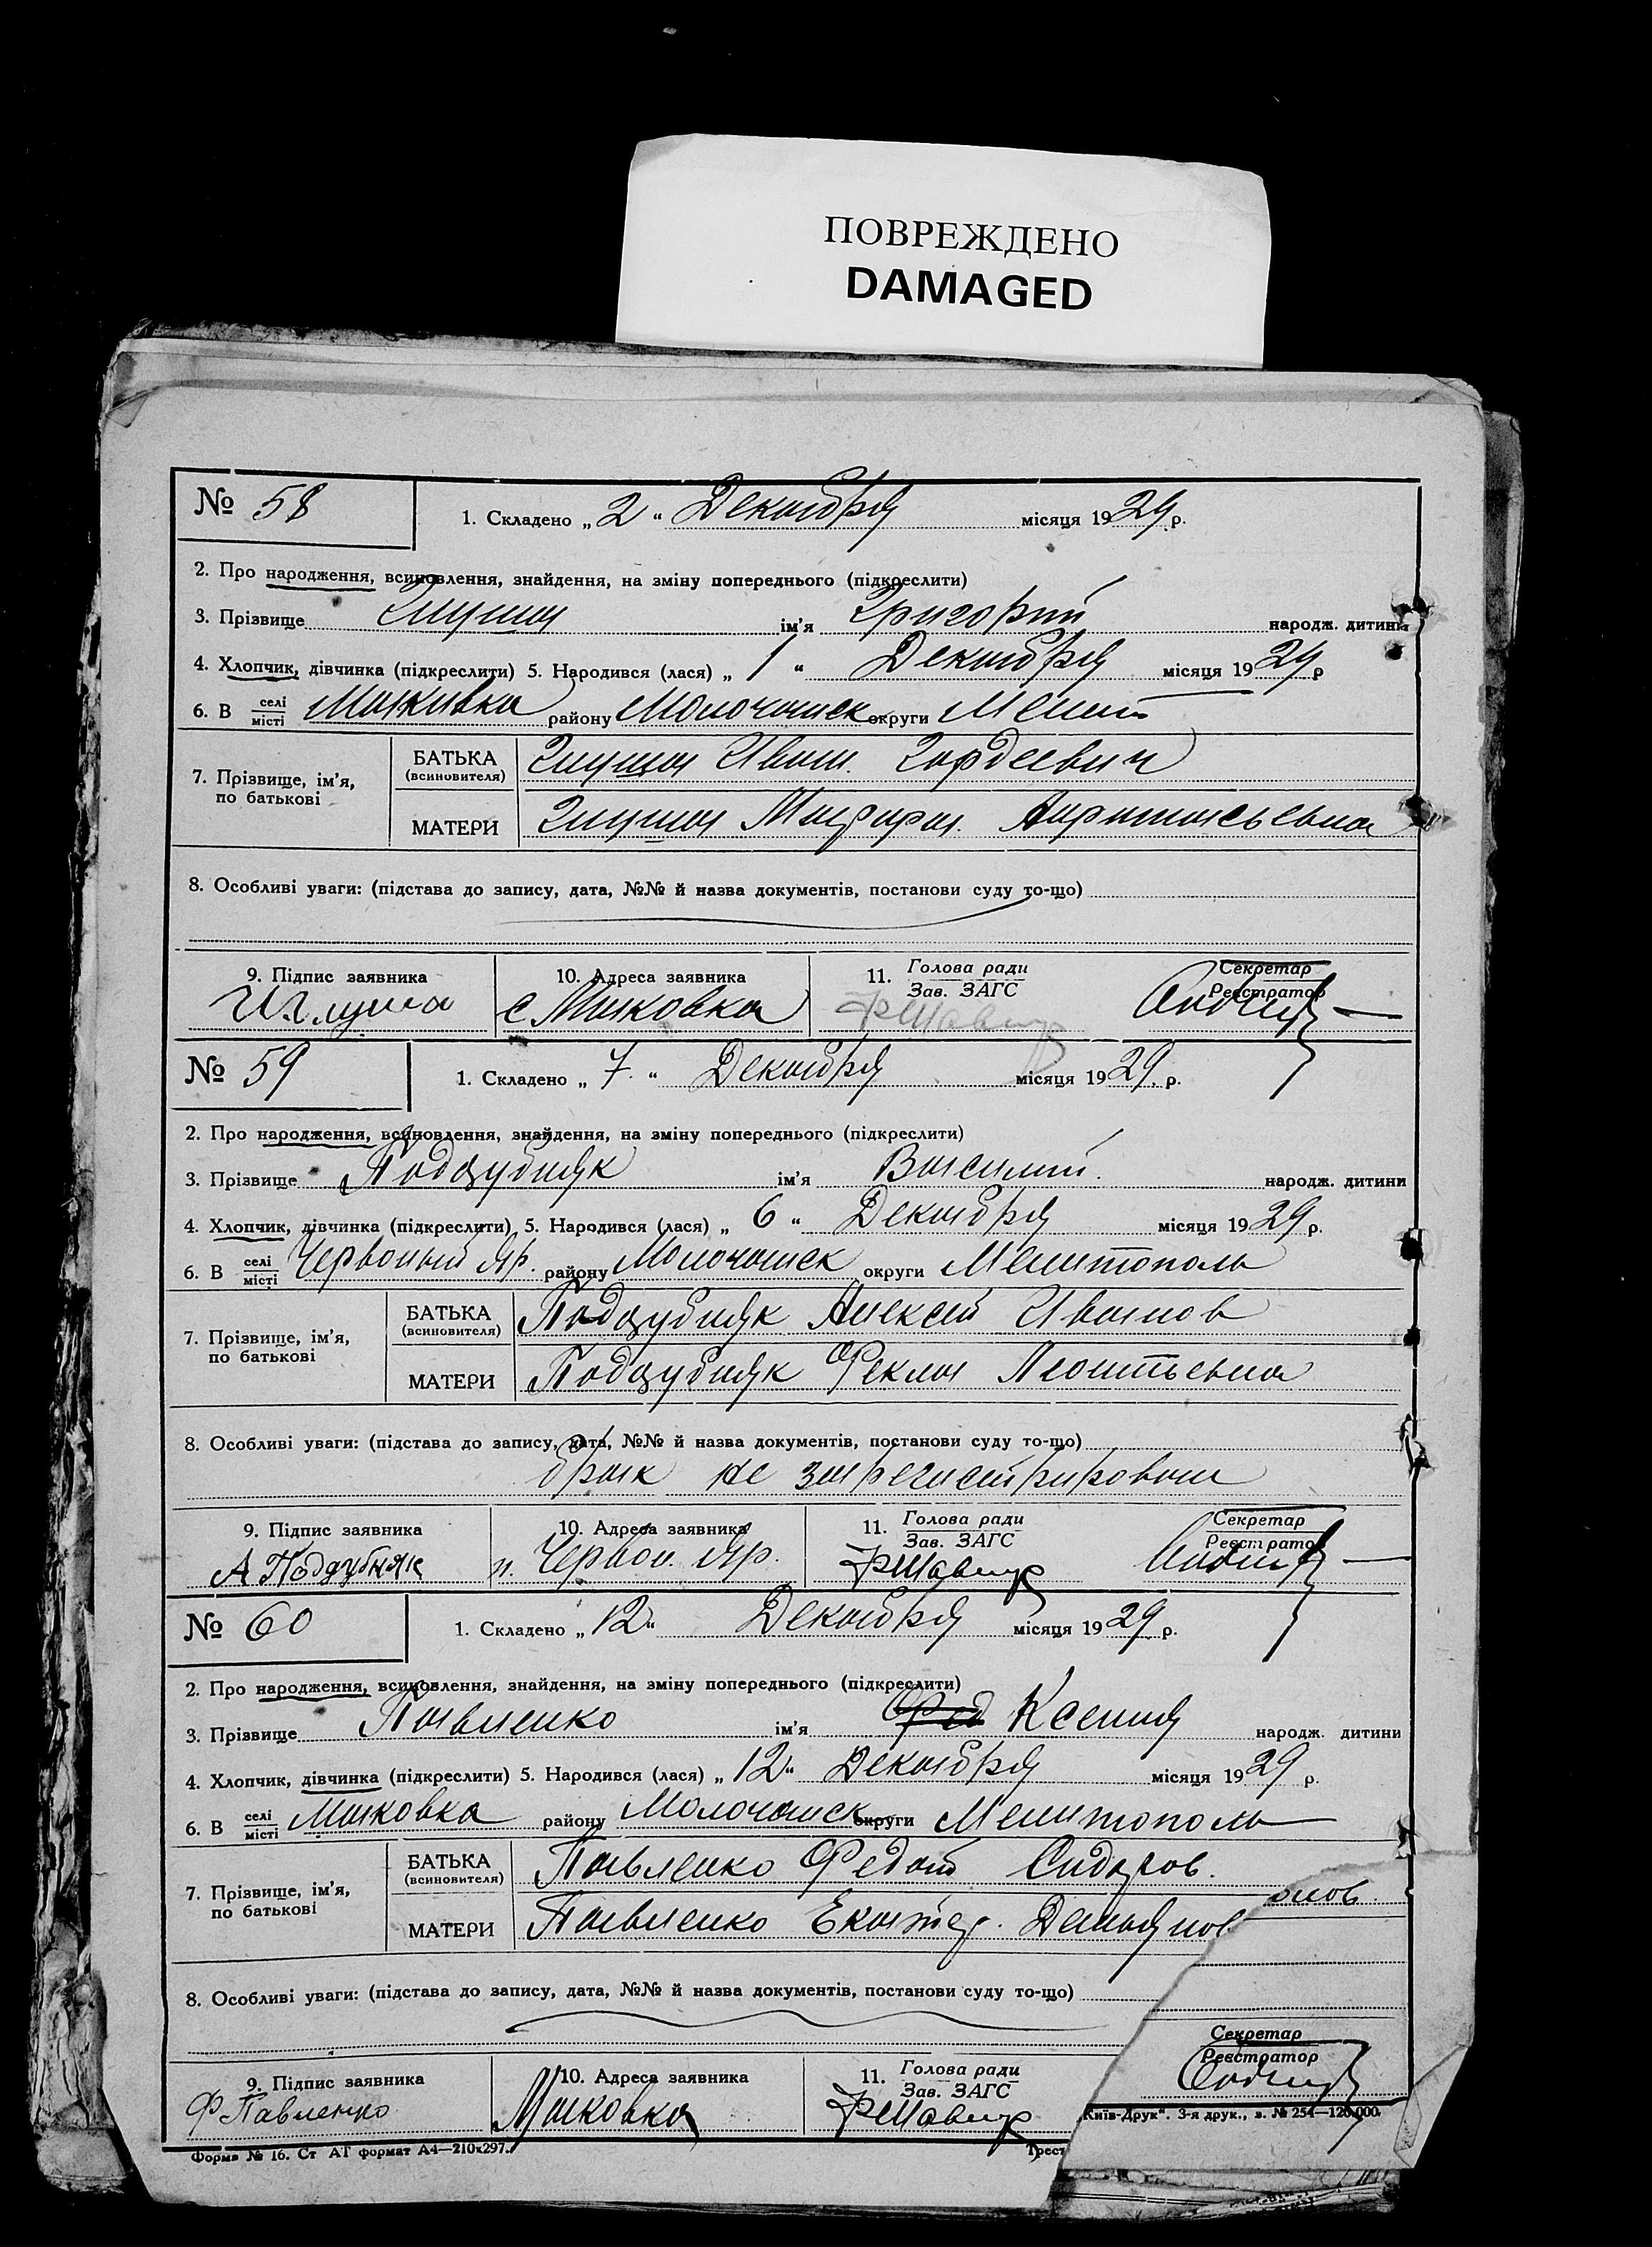 ПОВРЕЖДЕНО
DAMAGED
№ 58
1. Складено „ 2 “ Декабря місяця 1929 р.
2. Про народження, всиновлення, знайдення, на зміну попереднього (підкреслити)
3. Прізвище Глуша ім'я Григорий народж. дитини
4. Хлопчик, дівчинка (підкреслити) 5. Народився (лася) „ 1 “ Декабря місяця 1929 р
6. В селі місті району Молочанск округи Мелит
7. Прізвище, ім'я, по батькові
БАТЬКА (всиновителя) Глуша Иван. Гордеевич
МАТЕРИ Глуша
8. Особливі уваги: (підстава до запису, дата, №№ й назва документів, постанови суду то-що)
9. Підпис заявника 10. Адреса заявника 11. Голова ради Зав. ЗАГС Секретар Реєстратор
И Глуша с. Маковка
№ 59
1. Складено „ 7 “ Декабря місяця 1929. р.
2. Про народження, всиновлення, знайдення, на зміну попереднього (підкреслити)
3. Прізвище Поддубняк ім'я Василий. народж. дитини
4. Хлопчик, дівчинка (підкреслити) 5. Народився (лася) „ 6 “ Декабря місяця 1929 р.
6. В селі місті Червоный Яр. району Молочанск округи Мелитополь
7. Прізвище, ім'я, по батькові
БАТЬКА (всиновителя) Поддубняк Алексей Иванов
МАТЕРИ Поддубняк Фекла Леонтьевна
8. Особливі уваги: (підстава до запису, дата, №№ й назва документів, постанови суду то-що)
брак не зарегистрирован
9. Підпис заявника 10. Адреса заявника 11. Голова ради Зав. ЗАГС Секретар Реєстратор
А Поддубняк п. Червон. Яр.
№ 60
1. Складено „ 12 “ Декабря місяця 1929 р.
2. Про народження, всиновлення, знайдення, на зміну попереднього (підкреслити)
3. Прізвище Павленко ім'я Ксения народж. дитини
4. Хлопчик, дівчинка (підкреслити) 5. Народився (лася) „ 12 “ Декабря місяця 1929 р.
6. В селі місті Маковка району Молочанск округи Мелитополь
7. Прізвище, ім'я, по батькові
БАТЬКА (всиновителя) Павленко Федот Сидоров.
МАТЕРИ Павленко Екатер. Демьянов
8. Особливі уваги: (підстава до запису, дата, №№ й назва документів, постанови суду то-що)
9. Підпис заявника 10. Адреса заявника 11. Голова ради Зав. ЗАГС Секретар Реєстратор
Ф Павленко Маковка
Форма № 16. Ст АГ формат А4—210х297. Трест Київ-Друк“. 3-я друк., з. № 254—120.000.